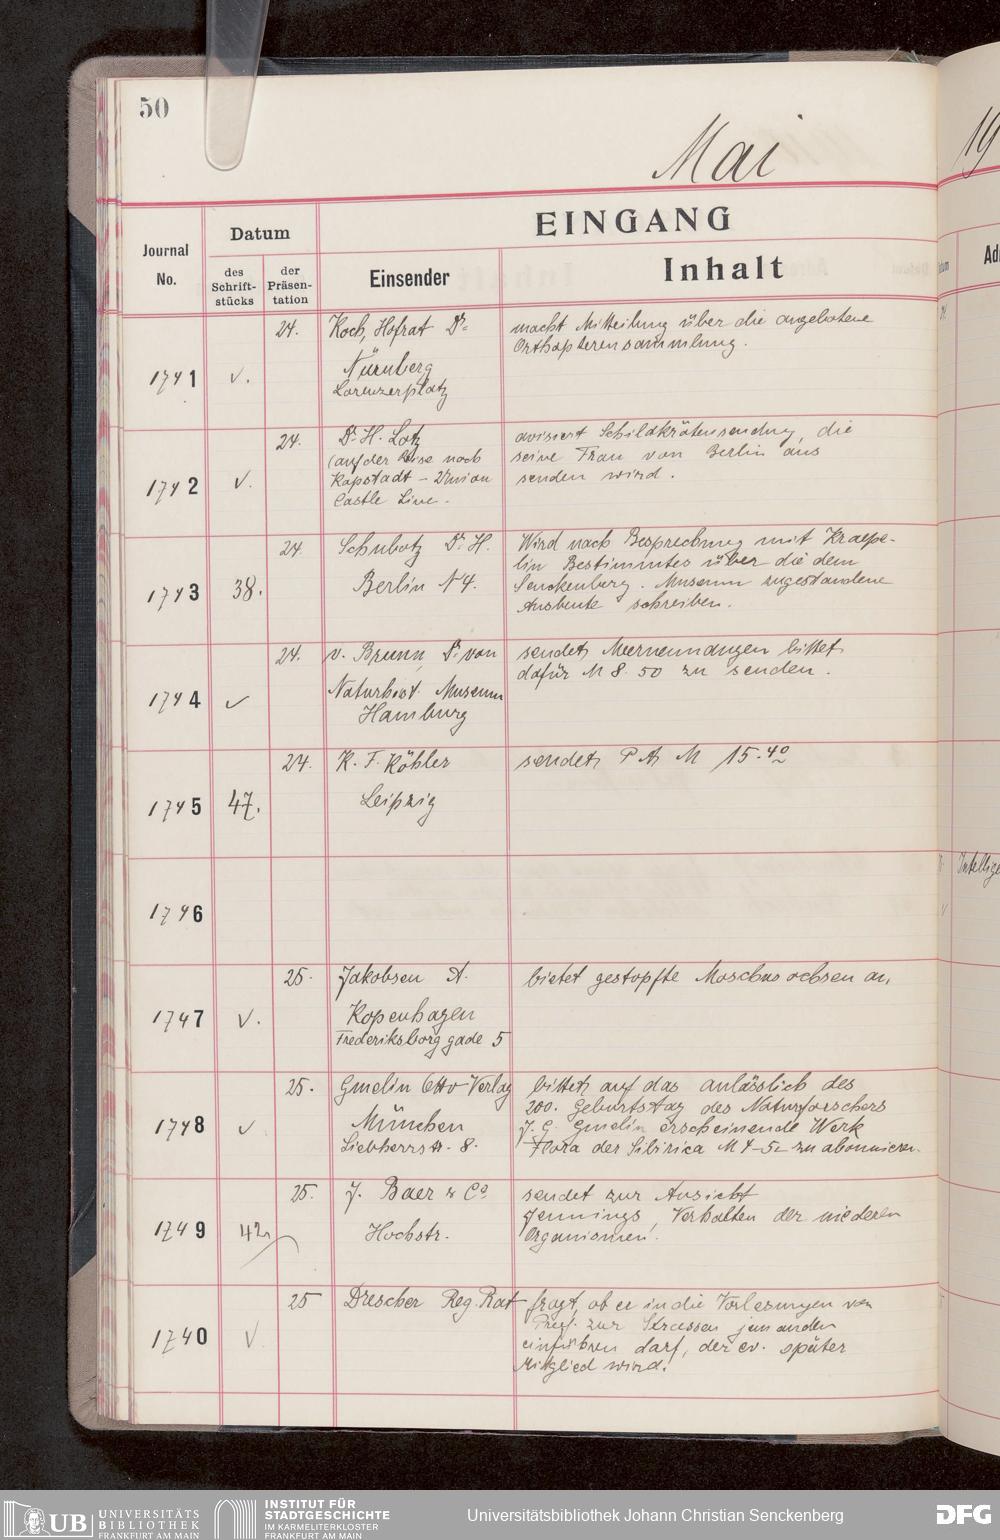 50
Mai
19
EINGANG
Journal
No.
Datum
des
Schrift-
stücks
der
Präsen-
tation
Einsender
Inhalt
1741
v.
24.
Koch, Hofrat Dr
Nürnberg
Lorenzerplatz
macht Mitteilung über die angebotene
Orthopterensammlung.
1742
v.
24.
Dr. H. Lotz
(auf der Reise nach
Kapstadt - Union
Castle Line.
avisiert Schildkrötensendung, die
seine Frau von Berlin aus
senden wird.
1743
38.
24.
Schubotz Dr. H.
Berlin N 4.
Wird nach Besprechung mit Kraepe-
lin Bestimmtes über die dem
Senckenberg. Museum zugestandene
Ausbeute schreiben.
1744
v
24.
v. Brunn, Dr. von
Naturhist. Museum
Hamburg
sendet Meerneunaugen bittet
dafür M 8.50 zu senden.
1745
47.
24.
K. F. Köhler
Leipzig
sendet P. A. M 15.40
1746
1747
v.
25.
Jakobsen A.
Kopenhagen
Frederiksborg gade 5
bietet gestopfte Moschusochsen an.
1748
v
25.
Gmelin Otto Verlag
München
Liebherrstr. 8.
bittet auf das anlässlich des
200. Geburtstag des Naturforschers
J. G. Gmelin erscheinende Werk
Flora der Sibirica M 4-5 zu abonnieren.
1749
42
25.
J. Baer & Co
Hochstr.
sendet zur Ansicht
Jennings, Verhalten der niederen
Organismen.
1740
v
25
Drescher Reg. Rat
fragt, ob er in die Vorlesungen von
Prof. zur Strassen jemanden
einführen darf, der ev. später
Mitglied wird.
UB
UNIVERSITÄTS
BIBLIOTHEK
FRANKFURT AM MAIN
INSTITUT FÜR
STADTGESCHICHTE
IM KARMELITERKLOSTER
FRANKFURT AM MAIN
Universitätsbibliothek Johann Christian Senckenberg
DFG